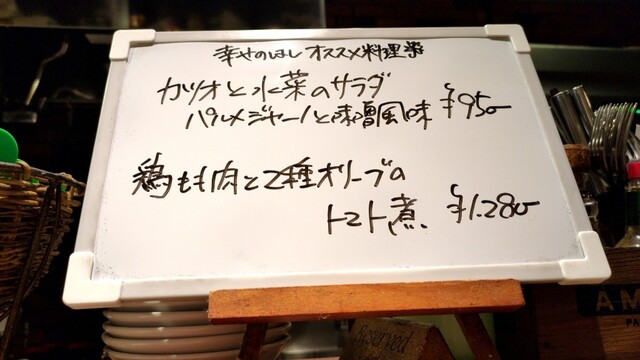 幸せのはし オススメ料理
カツオと水菜のサラダ
パルメジャーノと味噌風味 ¥950
鶏もも肉と2種オリーブの
トマト煮 ¥1.280
Reserved
AM
PA